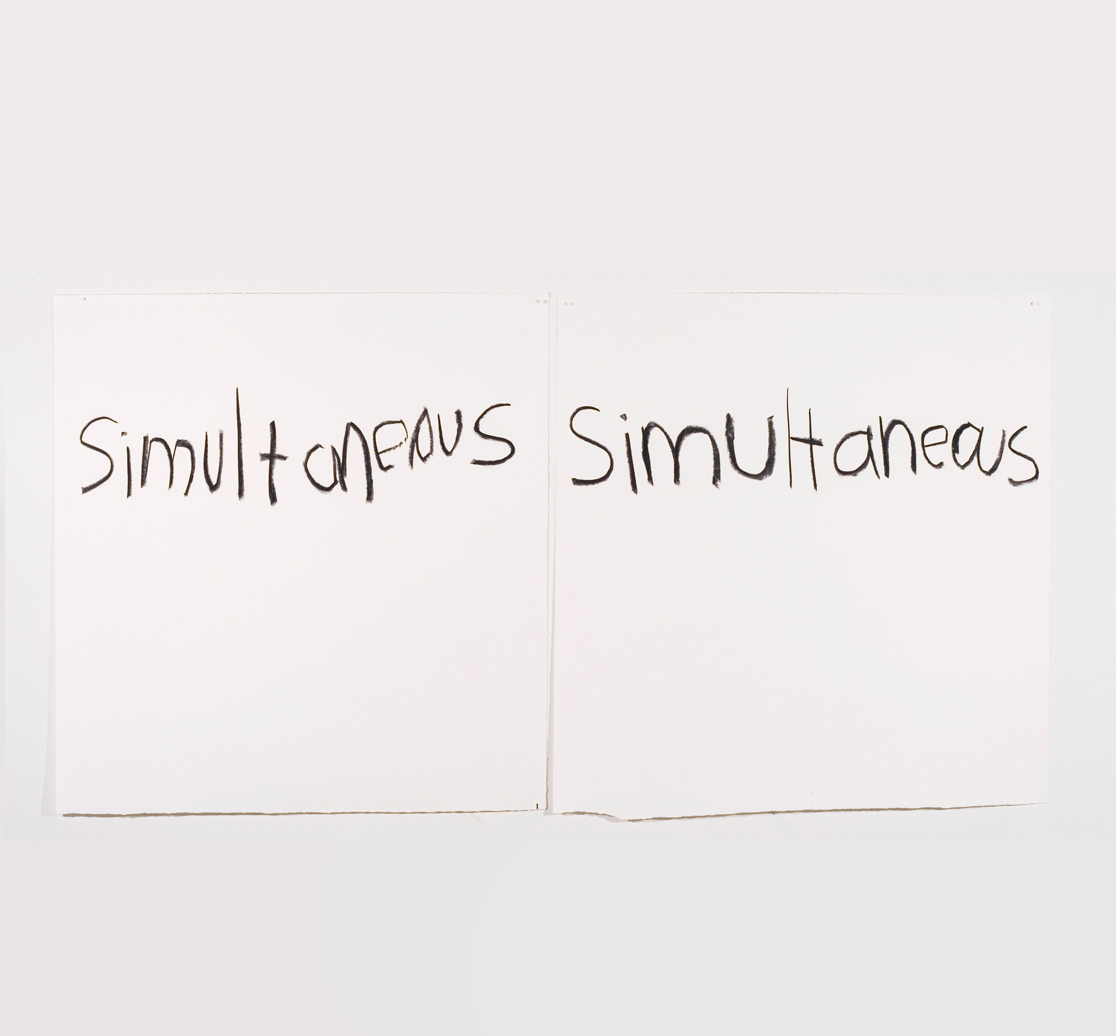 Simultaneous Simultaneous